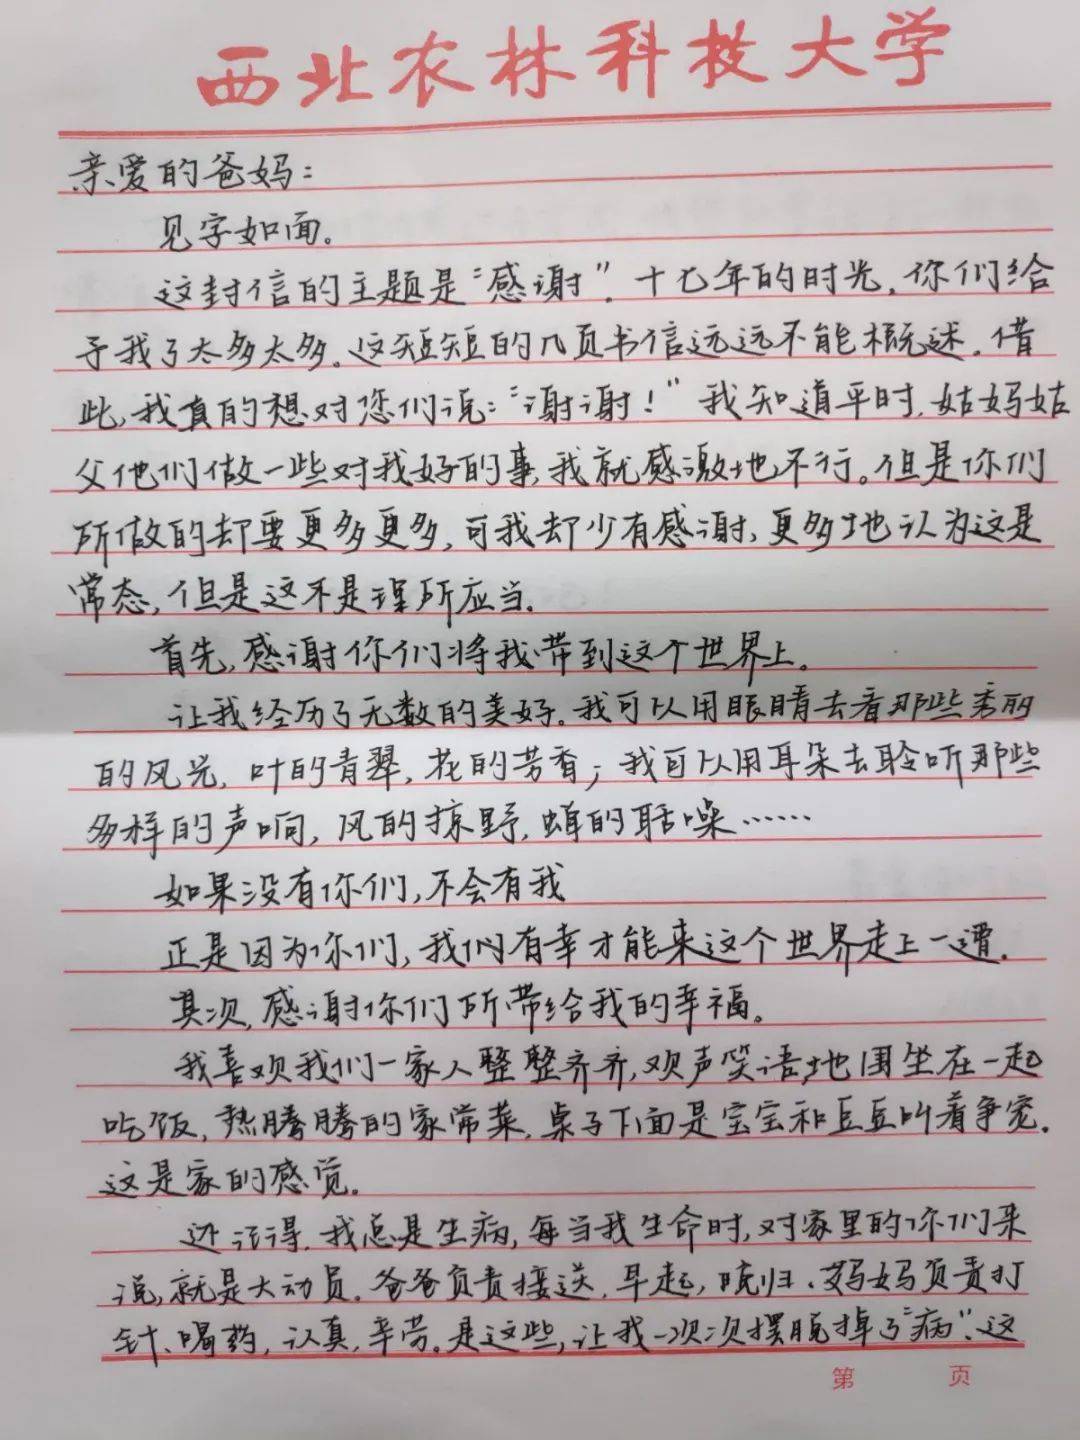 西北农林科技大学
亲爱的爸妈：
见字如面。
这封信的主题是“感谢”。十七年的时光，你们给
予我了太多太多。这短短的几页书信远远不能概述。借
此，我真的想对您们说：“谢谢！”我知道平时，姑妈姑
父他们做一些对我好的事，我就感激地不行。但是你们
所做的却要更多更多，可我却少有感谢，更多地认为这是
常态，但是这不是理所应当。
首先，感谢你们将我带到这个世界上。
让我经历了无数的美好。我可以用眼睛去看那些秀丽
的风光，叶的青翠，花的芳香；我可以用耳朵去聆听那些
多样的声响，风的掠野，蝉的聒噪……
如果没有你们，不会有我
正是因为你们，我们有幸才能来这个世界走上一遭。
其次，感谢你们所带给我的幸福。
我喜欢我们一家人整整齐齐，欢声笑语地围坐在一起
吃饭，热腾腾的家常菜，桌子下面是宝宝和豆豆叫着争宠。
这是家的感觉。
还记得，我总是生病，每当我生命时，对家里的你们来
说，就是大动员。爸爸负责接送，早起，晚归、妈妈负责打
针、喝药，认真，辛劳。是这些，让我一次次摆脱掉了“病”。这
第 页